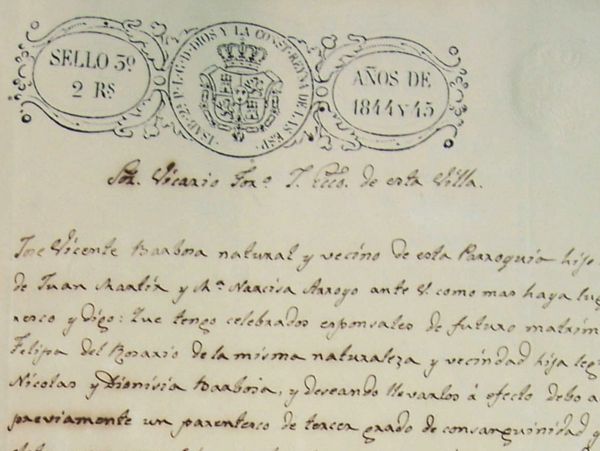 SELLO 3º
2 Rs
ISAB. 2ª P. L. G. D. DIOS Y LA CONST. REYNA DE LAS ESP.
AÑOS DE
1844 Y 45
Sor. Vicario For.o J. Ecco. de esta Villa.
Jose Vicente Barbosa natural y vecino de esta Parroquia hijo
de Juan Martin y Ma. Narcisa Arroyo ante V. como mas haya lug
resco y digo: Que tengo celebrados esponsales de futuro matrim
Felipa del Rosario de la misma naturaleza y vecindad hija leg
Nicolas y Dionisia Barbosa, y deseando llevarlos á efecto debo a
previamente un parentesco de tercer grado de consanguinidad q